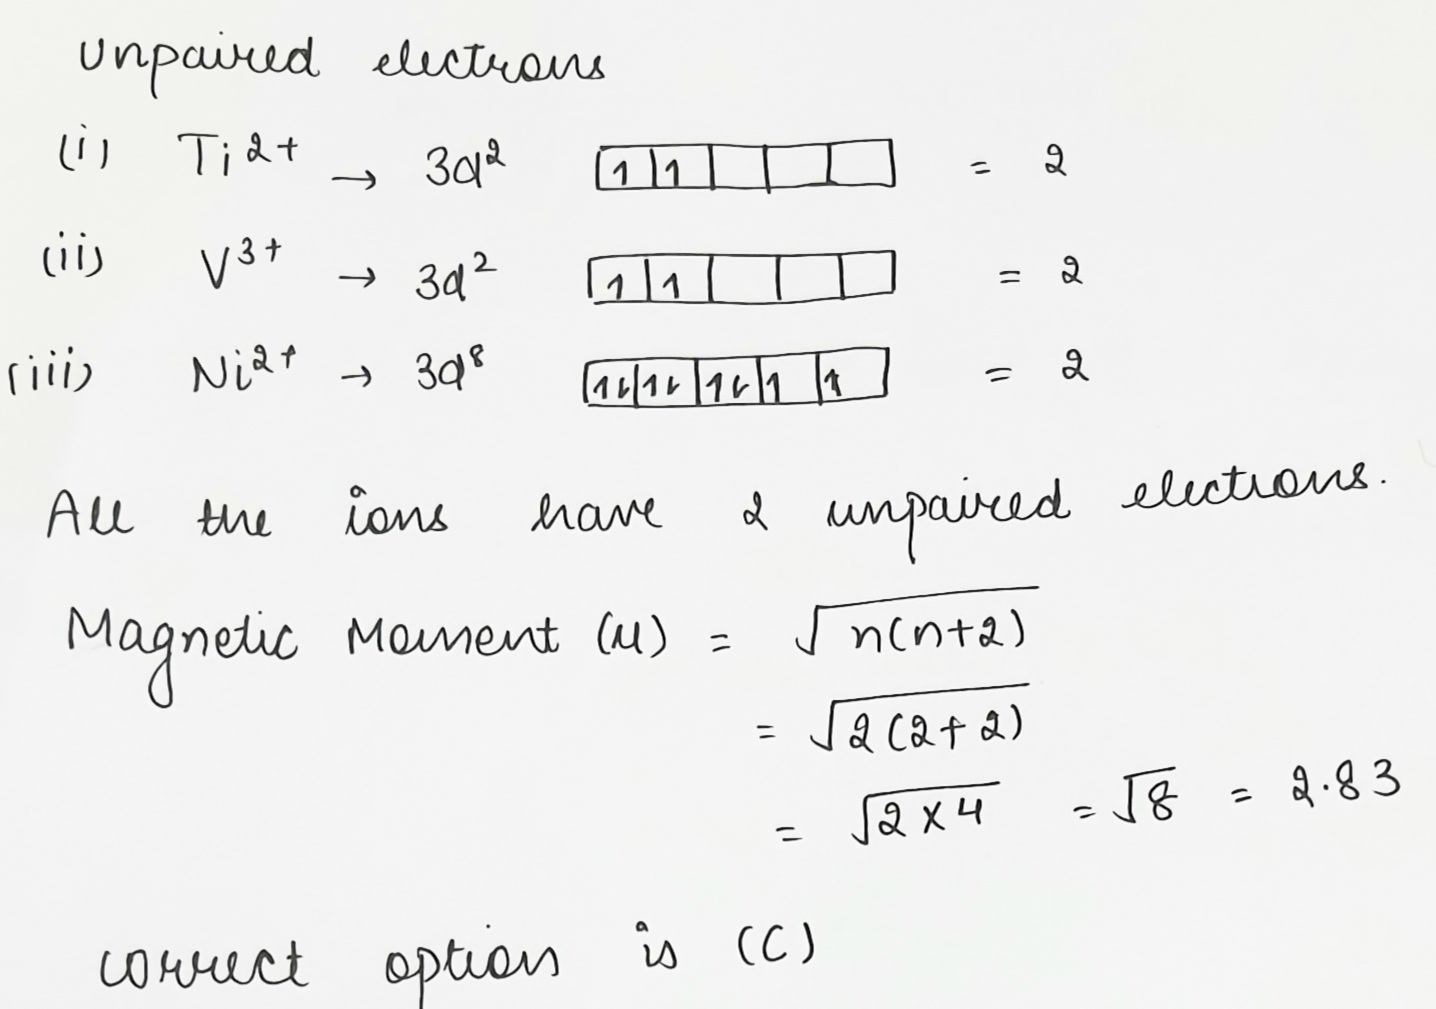 unpaired electrons
(i) Ti²⁺ → 3d² [1|1| | | ] = 2
(ii) V³⁺ → 3d² [1|1| | | ] = 2
(iii) Ni²⁺ → 3d⁸ [1↓|1↓|1↓|1|1] = 2
All the ions have 2 unpaired electrons.
Magnetic Moment (μ) = √n(n+2)
= √2(2+2)
= √2×4 = √8 = 2.83
correct option is (C)